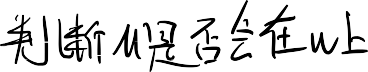 判断M是否会在W上